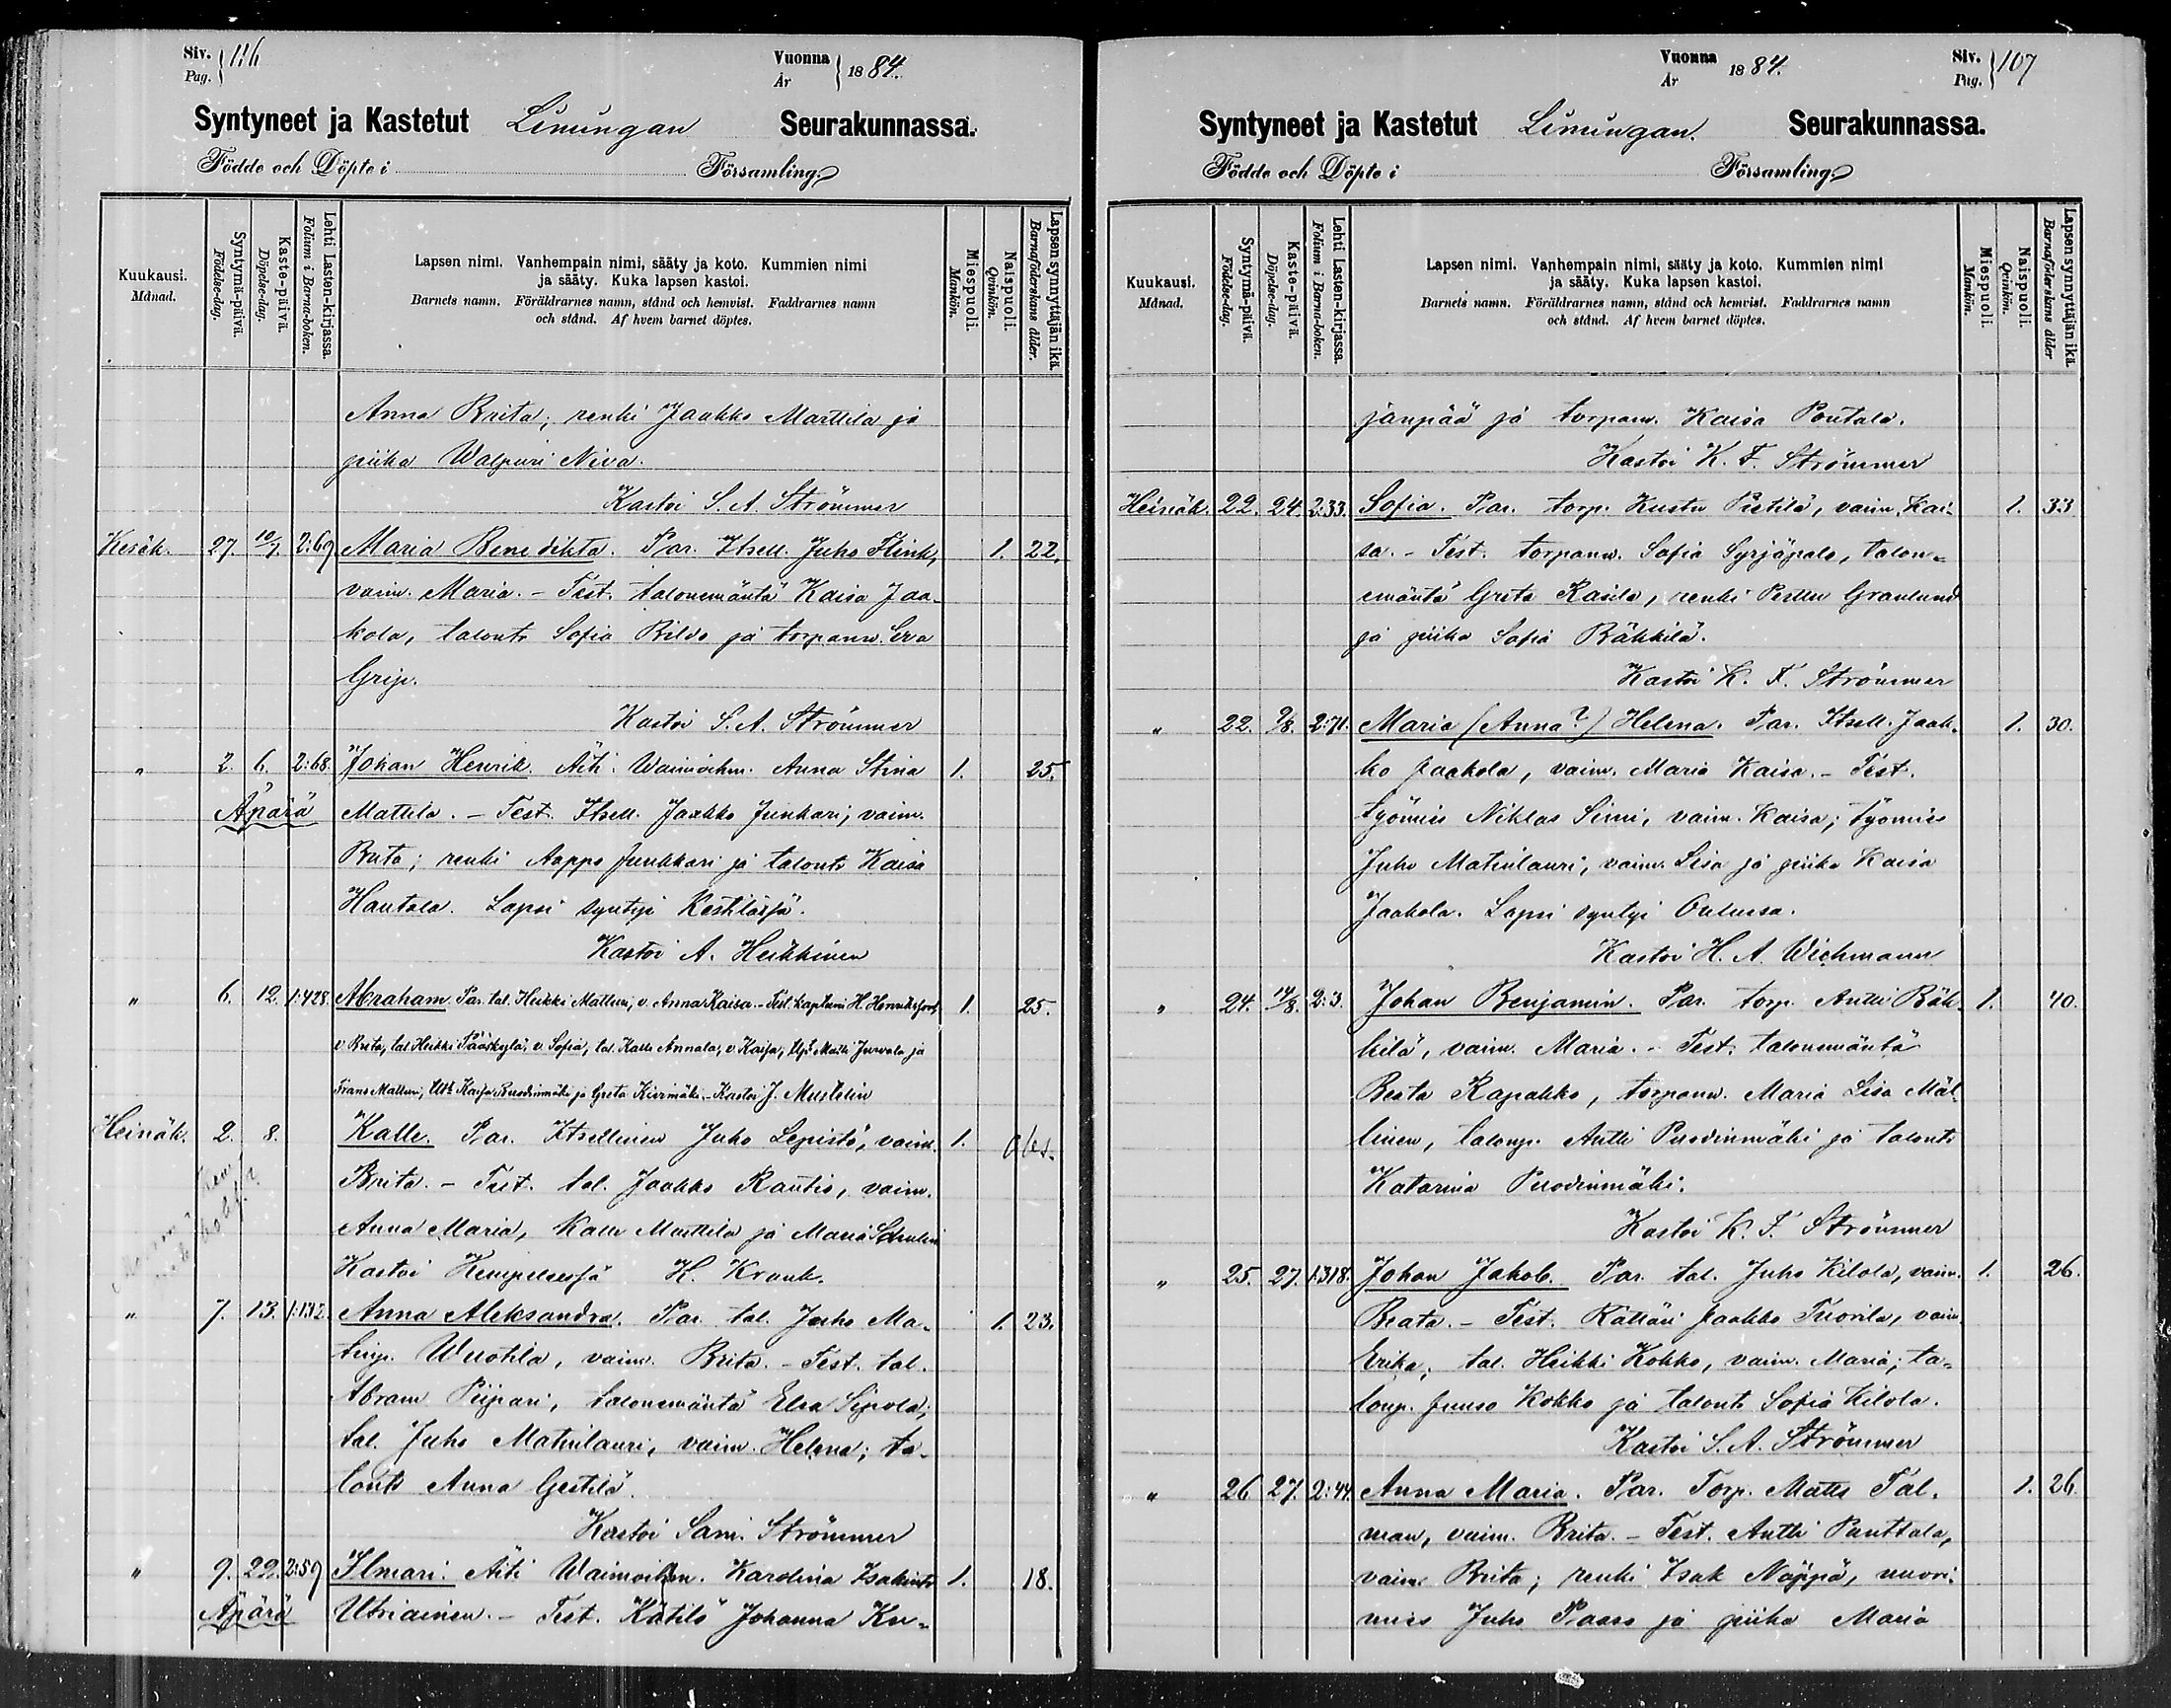 Siv. Pag. 116
Vuonna År 1884.
Syntyneet ja Kastetut Limingan Seurakunnassa.
Födde och Döpte i Församling.
Kuukausi. Månad.
Syntymä-päivä. Födelse-dag.
Kaste-päivä. Döpelse-dag.
Lehti Lasten-kirjassa. Folium i Barna-boken.
Lapsen nimi. Vanhempain nimi, sääty ja koto. Kummien nimi
ja sääty. Kuka lapsen kastoi.
Barnets namn. Föräldrarnes namn, stånd och hemvist. Faddrarnes namn
och stånd. Af hvem barnet döptes.
Miespuoli. Mankön.
Naispuoli. Qvinkön.
Lapsen synnyttäjän ikä. Barnaföderskans ålder.
Anna Brita; renki Jaakko Marttila ja
piika Walpuri Niva.
Kastoi S. A. Strömmer
Kesäk. 27. 10/7. 2:69 Maria Benedikta. Par. Itsell. Juho Flink, 1. 22.
vaim. Maria. - Test. talonemäntä Kaisa Jaa-
kola, talontr Sofia Rilva ja torpanw. Eva
Grip.
Kastoi S. A. Strömmer
" 2. 6. 2:68. Johan Henrik. Äiti. Waimoihm. Anna Stina 1. 25.
Äpärä Mattila. - Test. Itsell. Jaakko Junkari, vaim.
Brita; renki Aappo Junkkari ja talontr Kaisa
Hautala. Lapsi syntyi Kestilässä.
Kastoi A. Heikkinen
" 6. 12. 1:428. Abraham. Par. tal. Heikki Matturi, v. Anna Kaisa. - Test. kapluni H. Henriksfors 1. 25.
v. Brita, tal. Heikki Pääskylä, v. Sofia, tal. Kalle Annala, v. Kaisa, Matti Jurvala ja
Frans Matturi, Kaisa Puodinmäki ja Greta Kivimäki. - Kastoi J. Mustelin
Heinäk. 2. 8. Kalle. Par. Itsellinen Juho Lepistö, vaim. 1.
Brita. - Test. tal. Jaakko Rautio, vaim.
Anna Maria, Kalle Marttila ja Maria
Kastoi Kempeleessä H. Krank.
" 7. 13. 1:132. Anna Aleksandra. Par. tal. Juho Ma- 1. 23.
tinp. Wuotila, vaim. Brita. - Test. tal.
Abram Piipari, talonemäntä Elsa Sipola;
tal. Juho Matinlauri, vaim. Helena; ta-
lontr Anna Gestilä.
Kastoi Sam. Strömmer
" 9. 29. 2:59 Ilmari. Äiti Waimoihm. Karolina Isakintr 1. 18.
Äpärä Utriainen. - Test. Kätilö Johanna Ku-
Vuonna År 1884.
Siv. Pag. 107
Syntyneet ja Kastetut Limingan. Seurakunnassa.
Födde och Döpte i Församling.
Kuukausi. Månad.
Syntymä-päivä. Födelse-dag.
Kaste-päivä. Döpelse-dag.
Lehti Lasten-kirjassa. Folium i Barna-boken.
Lapsen nimi. Vanhempain nimi, sääty ja koto. Kummien nimi
ja sääty. Kuka lapsen kastoi.
Barnets namn. Föräldrarnes namn, stånd och hemvist. Faddrarnes namn
och stånd. Af hvem barnet döptes.
Miespuoli. Mankön.
Naispuoli. Qvinkön.
Lapsen synnyttäjän ikä. Barnaföderskans ålder
janpää ja torpanw. Kaisa Poutala.
Kastoi K. F. Strömmer
Heinäk. 22. 24. 2:33. Sofia. Par. torp. Kustu Pietilä, vaim. Kai- 1. 33
sa. - Test. torpanw. Sofia Syrjäpalo, talon-
emäntä Greta Rasila, renki Perttu Granlund
ja piika Sofia Räkkilä.
Kastoi K. F. Strömmer
" 22. 9/8. 2:71. Maria (Anna?) Helena. Par. Itsell. Jaak- 1. 30.
ko Jaakola, vaim. Maria Kaisa. - Test.
työmies Niklas Simi, vaim. Kaisa; työmies
Juho Matinlauri, vaim. Lisa ja piika Kaisa
Jaakola. Lapsi syntyi Oulussa.
Kastoi H. A. Wichmann
" 24. 14/8. 2:3. Johan Benjamin. Par. torp. Antti Räk- 1. 40.
kilä, vaim. Maria. - Test. talonemäntä
Beata Rapakko, torpanw. Maria Lisa Mäl-
linen, talonp. Antti Puodinmäki ja talontr
Katarina Puodinmäki.
Kastoi K. F. Strömmer
" 25. 27. 1:318. Johan Jakob. Par. tal. Juho Kilola, vaim. 1. 26.
Beata. - Test. Räätäri Jaakko Tuovila, vaim.
Erika; tal. Heikki Kokko, vaim. Maria; ta-
lonp. Juuso Kokko ja talontr Sofia Kilola.
Kastoi S. A. Strömmer
" 26. 27. 2:44. Anna Maria. Par. Torp. Matts Tal- 1. 26.
man, vaim. Brita. - Test. Antti Panttala,
vaim. Brita; renki Isak Näppä, nuori-
mies Juho Paaso ja piika Maria